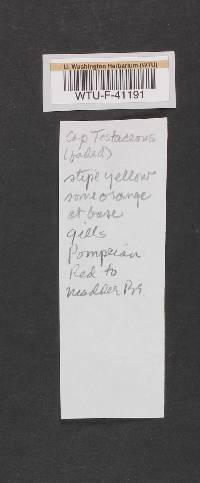 U. Washington Herbarium (WTU)
WTU-F-41191
Cap Testaceous
(faded)
stipe yellow
some orange
at base
gills
Pompeian
Red to
madder Br.